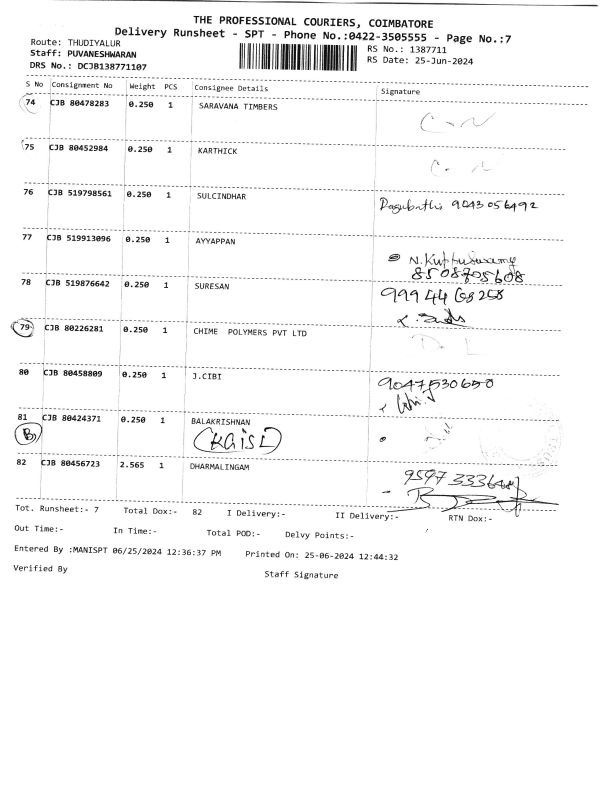 THE PROFESSIONAL COURIERS, COIMBATORE
Delivery Runsheet - SPT - Phone No.:0422-3505555 - Page No.:7
Route: THUDIYALUR RS No.: 1387711
Staff: PUVANESHWARAN RS Date: 25-Jun-2024
DRS No.: DCJB138771107
S No Consignment No Weight PCS Consignee Details Signature
74 CJB 80478283 0.250 1 SARAVANA TIMBERS
75 CJB 80452984 0.250 1 KARTHICK
76 CJB 519798561 0.250 1 SULCINDHAR 9043056492
77 CJB 519913096 0.250 1 AYYAPPAN
N.Kuppuswamy
8508705608
78 CJB 519876642 0.250 1 SURESAN
79 CJB 80226281 0.250 1 CHIME POLYMERS PVT LTD
D. L
80 CJB 80458809 0.250 1 J.CIBI 9047530650
81 CJB 80424371 0.250 1 BALAKRISHNAN
82 CJB 80456723 2.565 1 DHARMALINGAM
Tot. Runsheet:- 7 Total Dox:- 82 I Delivery:- II Delivery:- RTN Dox:-
Out Time:- In Time:- Total POD:- Delvy Points:-
Entered By :MANISPT 06/25/2024 12:36:37 PM Printed On: 25-06-2024 12:44:32
Verified By Staff Signature